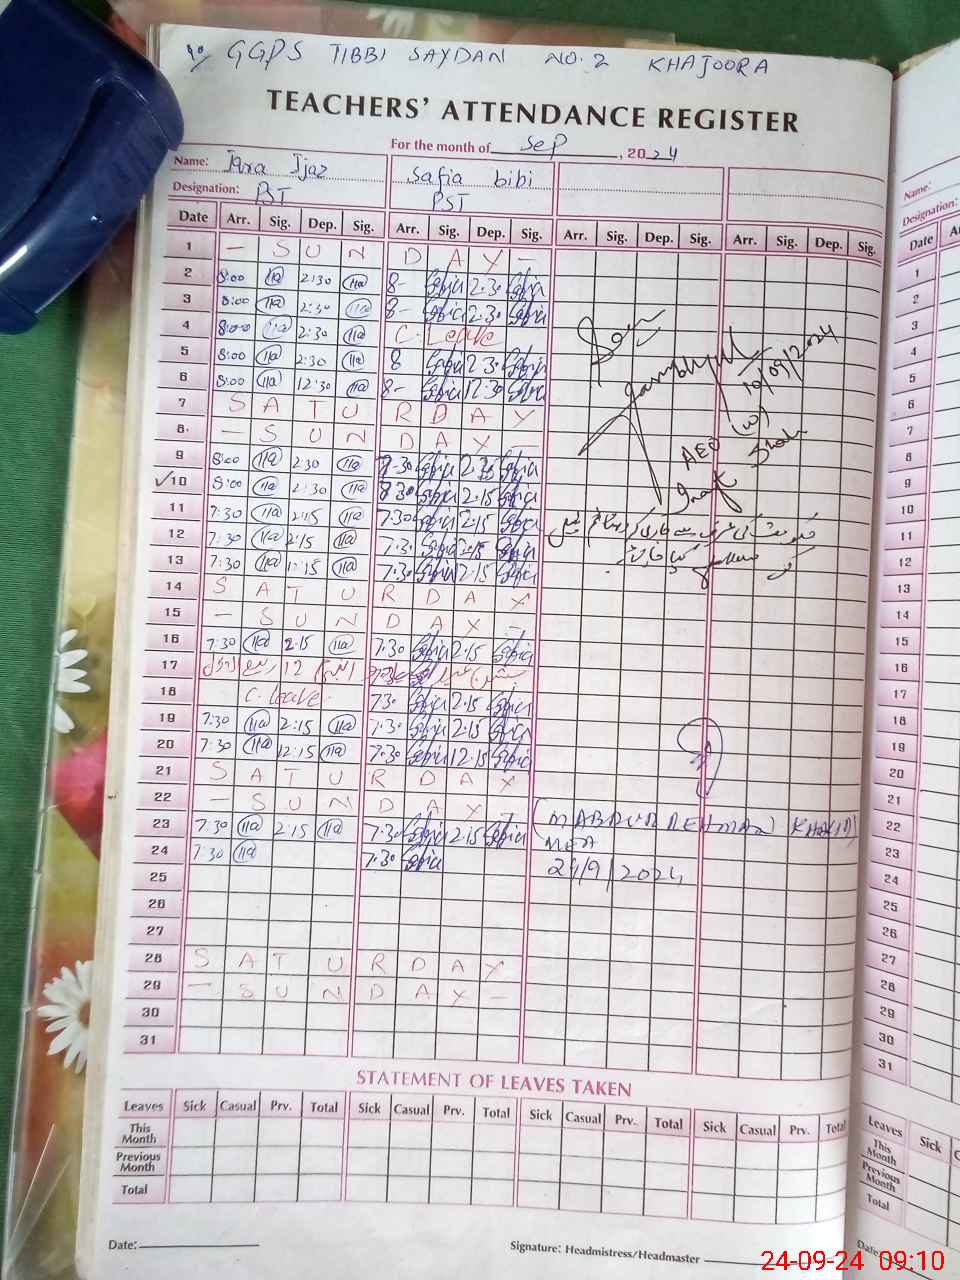 GGPS TIBBI SAYDAN NO. 2 KHAJOORA
TEACHERS' ATTENDANCE REGISTER
For the month of Sep, 2024
Name: Iqra Ijaz Safia bibi
Designation: PST PST
Date Arr. Sig. Dep. Sig. Arr. Sig. Dep. Sig. Arr. Sig. Dep. Sig. Arr. Sig. Dep. Sig.
1 — S U N D A Y —
2 8:00 2:30 8- Safia 2.30 Safia
3 8:00 2:30 8- Safia 2.30 Safia
4 8:00 2:30 C. Leave
5 8:00 2:30 8 Safia 2.30 Safia
6 8:00 12:30 8- Safia 12.30 Safia
7 S A T U R D A Y
8 — S U N D A Y —
9 8:00 2:30 8.30 Safia 2.30 Safia
10 8:00 2:30 8.30 Safia 2.15 Safia
11 7:30 2:15 7.30 Safia 2.15 Safia
12 7:30 2:15 7.30 Safia 2.15 Safia
13 7:30 12:15 7.30 Safia 12.15 Safia
14 S A T U R D A Y
15 — S U N D A Y —
16 7:30 2:15 7.30 Safia 2.15 Safia
17 12 ربیع الاول
18 C. leave 7.30 Safia 2.15 Safia
19 7:30 2:15 7.30 Safia 2.15 Safia
20 7:30 12:15 7.30 Safia 12.15 Safia
21 S A T U R D A Y
22 — S U N D A Y —
23 7:30 2:15 7.30 Safia 2.15 Safia
24 7:30 7.30 Safia
25
26
27
28 S A T U R D A Y
29 — S U N D A Y —
30
31
Seen
10/09/2024
AEO (W)
Inayat Shah
(M ABDUR REHMAN KHALID)
MEA
24/9/2024
STATEMENT OF LEAVES TAKEN
Leaves Sick Casual Prv. Total Sick Casual Prv. Total Sick Casual Prv. Total Sick Casual Prv. Total
This Month
Previous Month
Total
Date:
Signature: Headmistress/Headmaster
Name:
Designation:
Date
1
2
3
4
5
6
7
8
9
10
11
12
13
14
15
16
17
18
19
20
21
22
23
24
25
26
27
28
29
30
31
Leaves Sick
This Month
Previous Month
Total
Date:
24-09-24 09:10